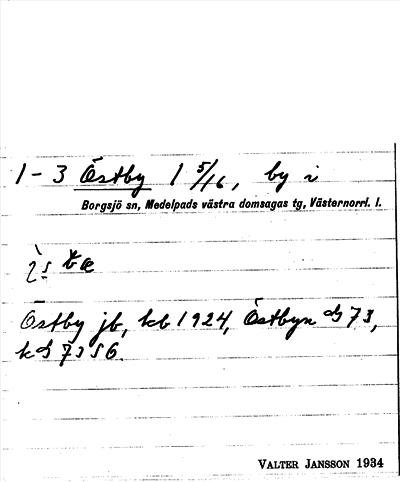 1-3 Östby 1 5/16, by i
Borgsjö sn, Medelpads västra domsagas tg, Västernorrl. l.
Östby jb, kb 1924, Östbyn GS 73,
kGS 7356.
VALTER JANSSON 1934